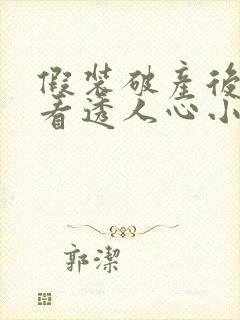 假装破產後
看透人心小
郭潔